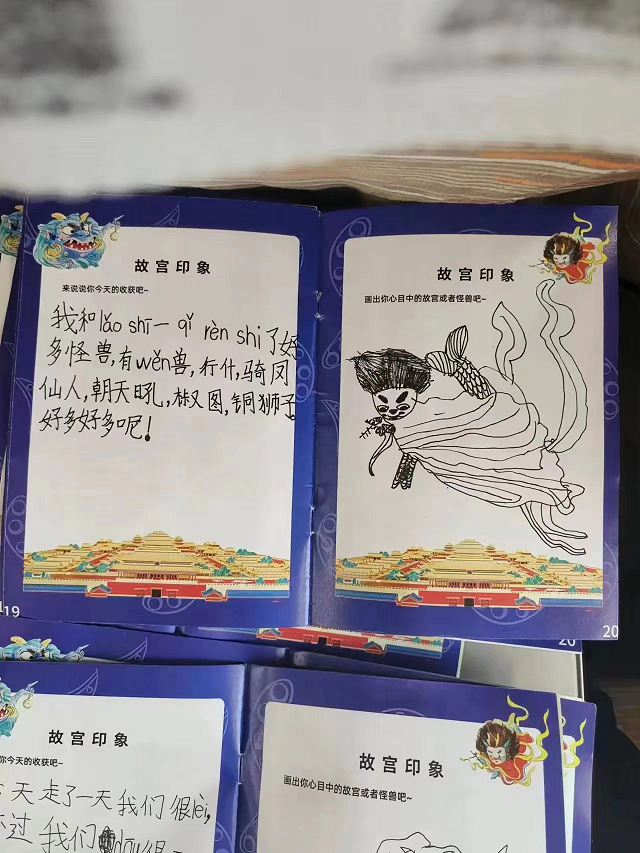 故宫印象
来说说你今天的收获吧~
我和lǎo shī一 qǐ rèn shi了好
多怪兽,有wěn兽,行什,骑凤
仙人,朝天吼,椒图,铜狮子
好多好多呢!
19
故宫印象
画出你心目中的故宫或者怪兽吧~
20
20
故宫印象
你今天的收获吧~
天走了一天我们很lèi,
过我们
故宫印象
画出你心目中的故宫或者怪兽吧~